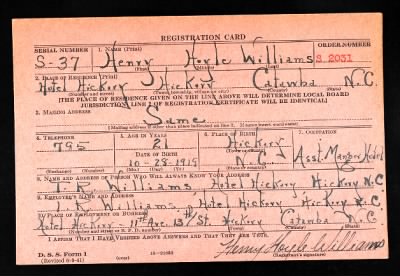 REGISTRATION CARD
SERIAL NUMBER 1. NAME (Print) ORDER NUMBER
S-37 Henry Hoyle Williams S. 2031
(First) (Middle) (Last)
2. PLACE OF RESIDENCE (Print)
Hotel Hickory Hickory Catawba N.C.
[THE PLACE OF RESIDENCE GIVEN ON THE LINE ABOVE WILL DETERMINE LOCAL BOARD
JURISDICTION; LINE 2 OF REGISTRATION CERTIFICATE WILL BE IDENTICAL]
3. MAILING ADDRESS
Same
[Mailing address if other than place indicated on line 2. If same, insert word same]
4. TELEPHONE 5. AGE IN YEARS 6. PLACE OF BIRTH 7. OCCUPATION
795 21 Hickory
DATE OF BIRTH
10-28-1919 N.C. Asst. Manger Hotel
8. NAME AND ADDRESS OF PERSON WHO WILL ALWAYS KNOW YOUR ADDRESS
T. R. Williams, Hotel Hickory Hickory N.C.
9. EMPLOYER'S NAME AND ADDRESS
T. R. Williams, Hotel Hickory Hickory N.C.
10. PLACE OF EMPLOYMENT OR BUSINESS
Hotel Hickory 11th Ave. 13th St. Hickory Catawba N.C.
I AFFIRM THAT I HAVE VERIFIED ABOVE ANSWERS AND THAT THEY ARE TRUE.
D. S. S. Form 1
Henry Hoyle Williams